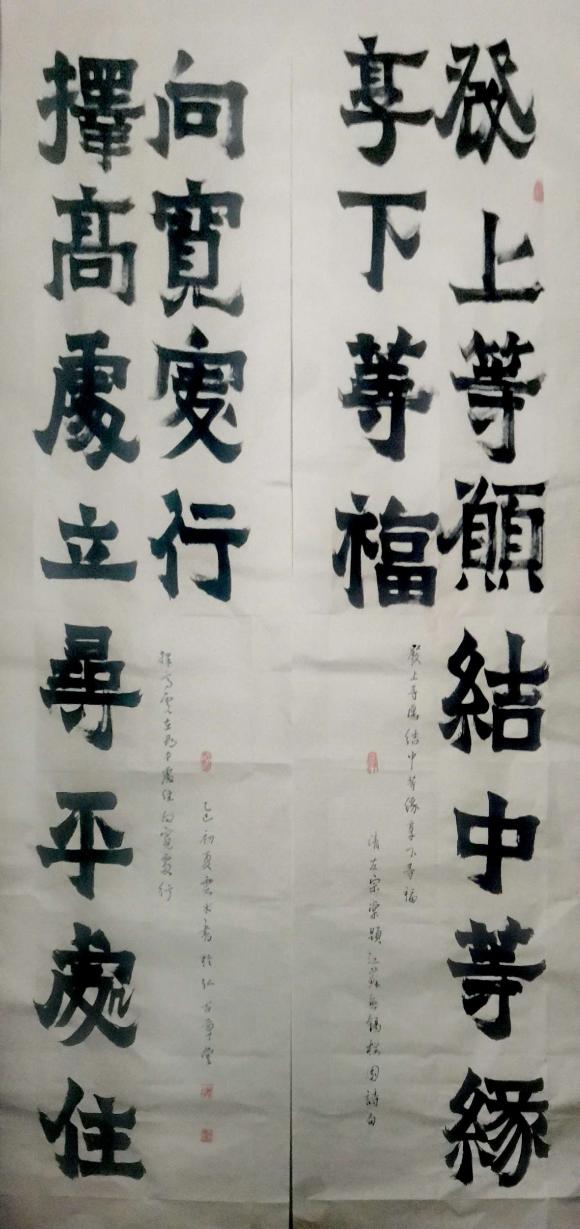 發上等願結中等緣
享下等福
發上等願結中等緣享下等福
清左宗棠題江蘇無錫梅園詩句
擇髙處立尋平處住
向寬處行
擇高處立尋平處住向寬處行
乙巳初夏雲水書於弘古草堂